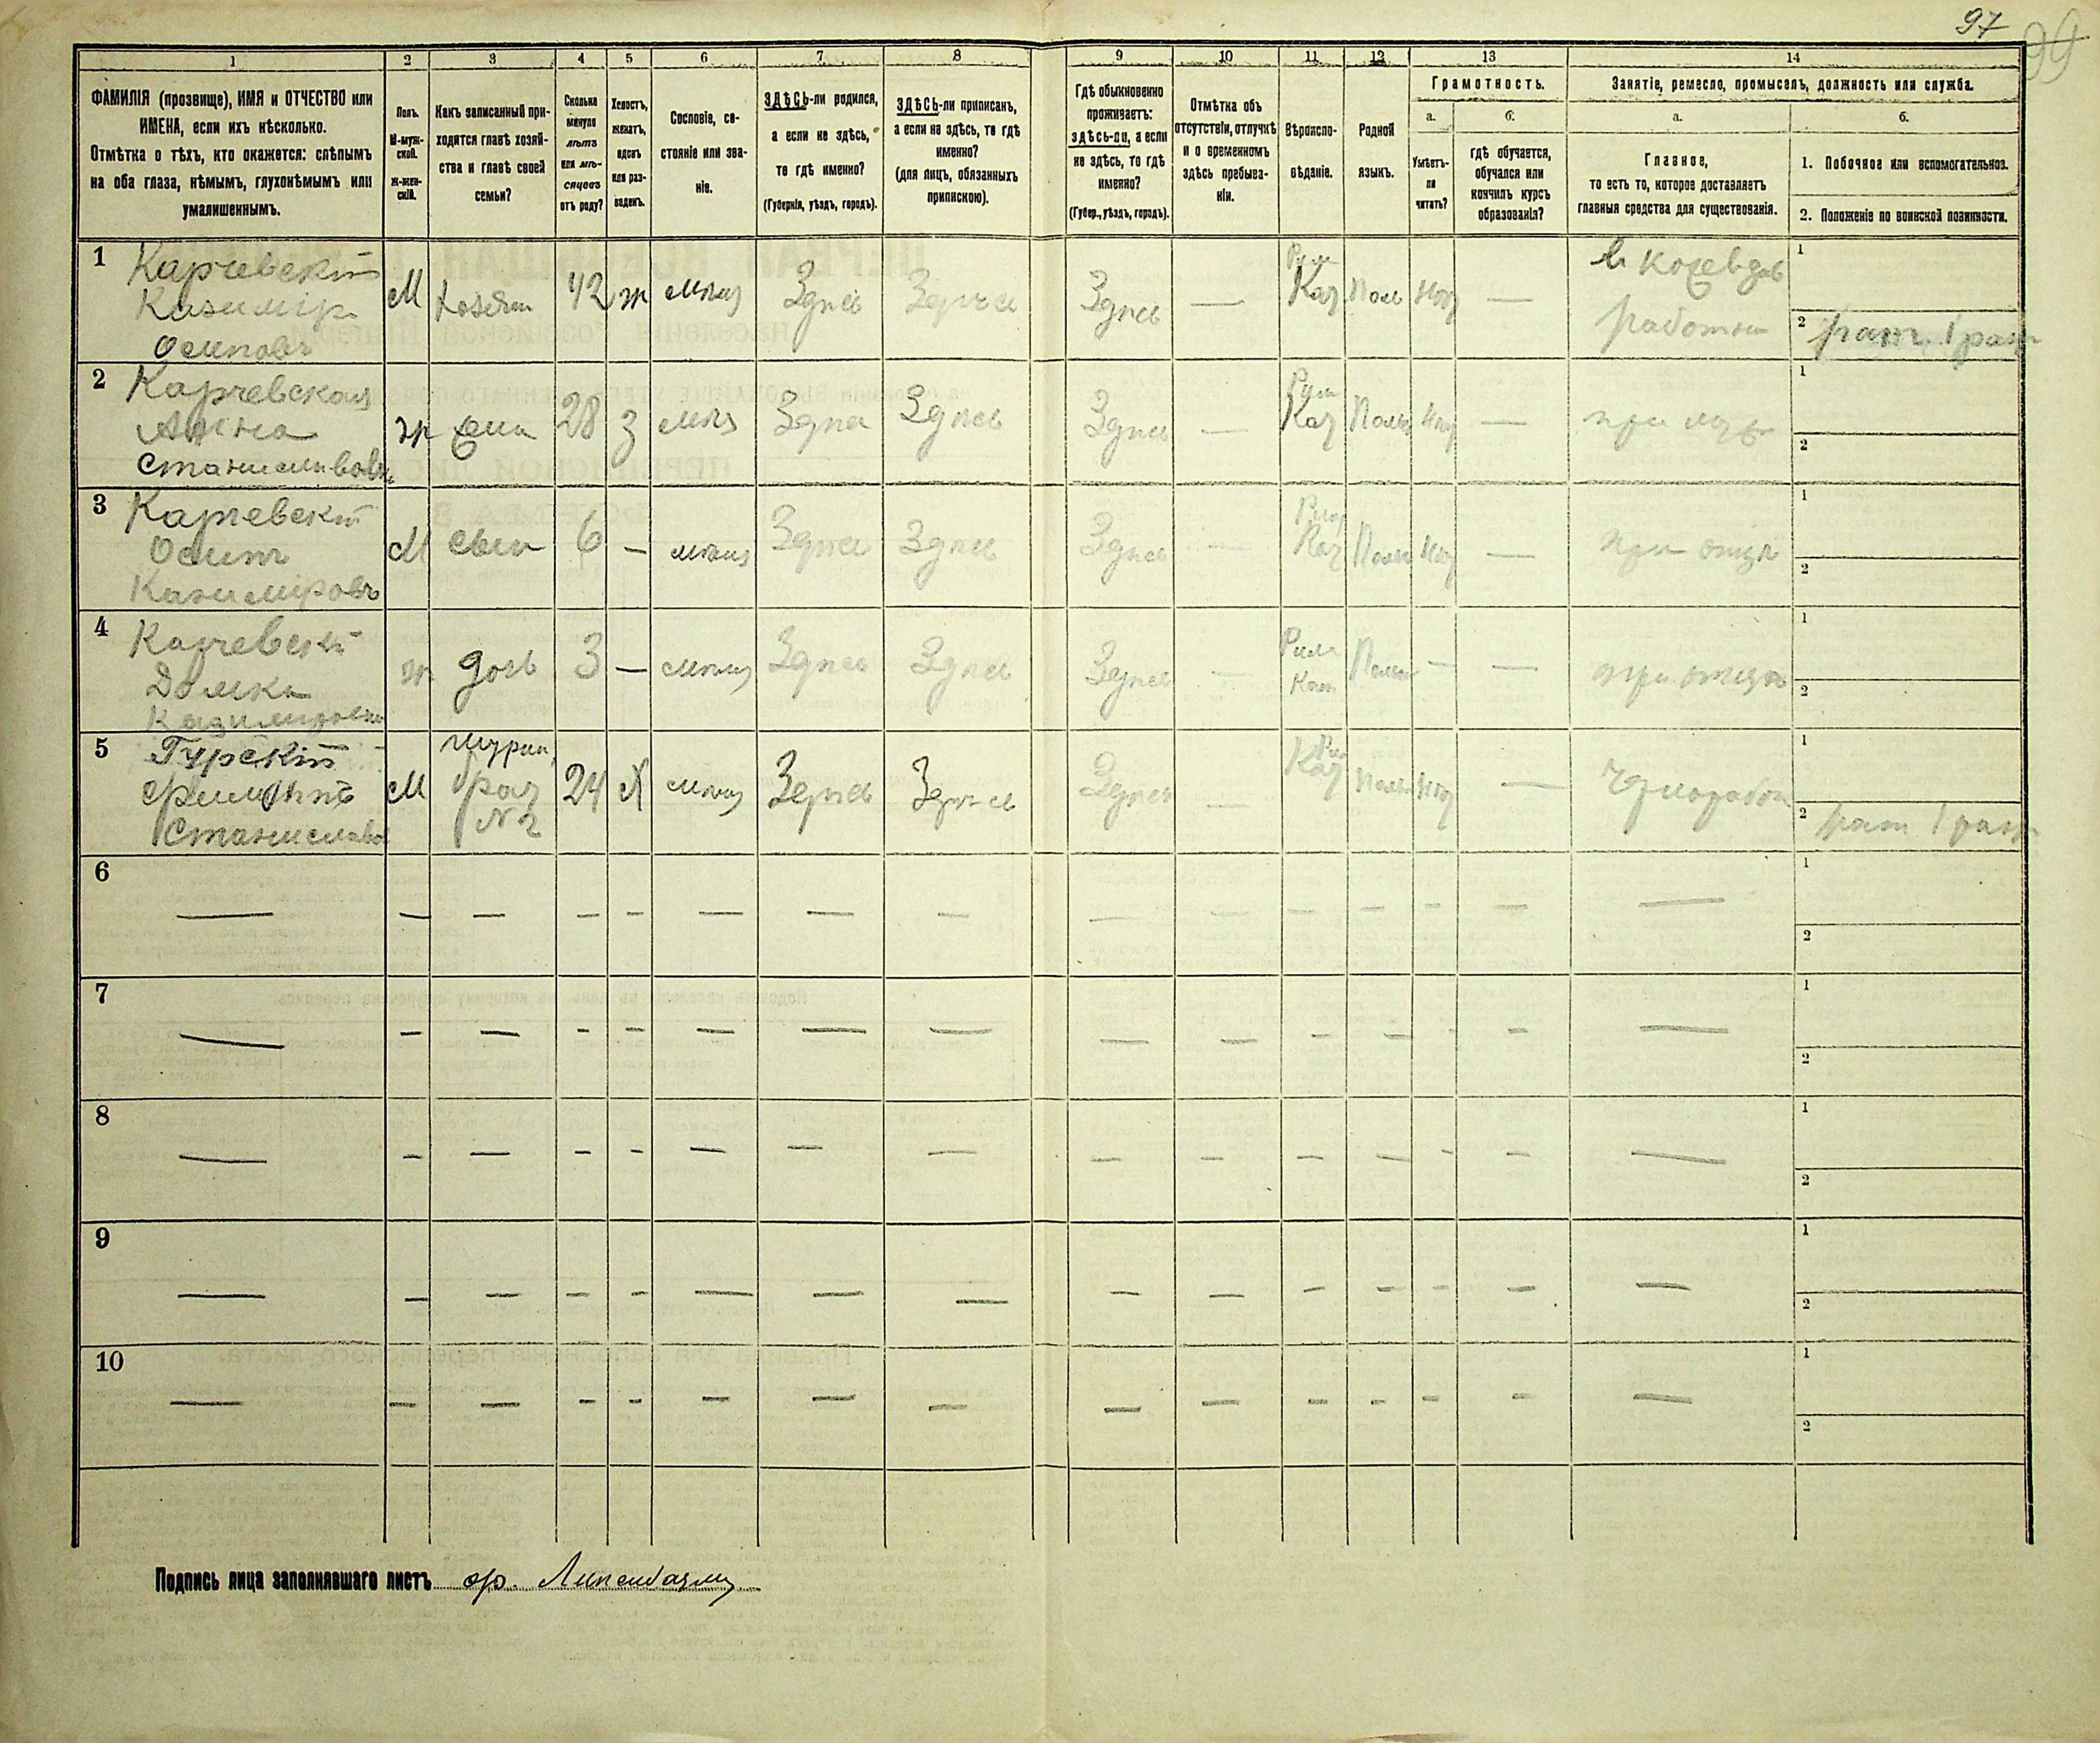 97
99
1 2 3 4 5 6 7 8 9 10 11 12 13 14
ФАМИЛІЯ (прозвище), ИМЯ и ОТЧЕСТВО или
ИМЕНА, если ихъ нѣсколько.
Отмѣтка о тѣхъ, кто окажется: слѣпымъ
на оба глаза, нѣмымъ, глухонѣмымъ или
умалишеннымъ.
Полъ.
М-муж-
ской.
Ж-жен-
скій.
Какъ записанный при-
ходится главѣ хозяй-
ства и главѣ своей
семьи?
Сколько
минуло
лѣтъ
или мѣ-
сяцевъ
отъ роду?
Холостъ,
женатъ,
вдовъ
или раз-
веденъ.
Сословіе, со-
стояніе или зва-
ніе.
ЗДѢСЬ-ли родился,
а если не здѣсь,
то гдѣ именно?
(Губернія, уѣздъ, городъ).
ЗДѢСЬ-ли приписанъ,
а если не здѣсь, то гдѣ
именно?
(для лицъ, обязанныхъ
припискою).
Гдѣ обыкновенно
проживаетъ:
здѣсь-ли, а если
не здѣсь, то гдѣ
именно?
(Губер., уѣздъ, городъ).
Отмѣтка объ
отсутствіи, отлучкѣ
и о временномъ
здѣсь пребыва-
ніи.
Вѣроиспо-
вѣданіе.
Родной
языкъ.
Грамотность.
а.
Умѣетъ-
ли
читать?
б.
гдѣ обучается,
обучался или
кончилъ курсъ
образованія?
Занятіе, ремесло, промыселъ, должность или служба.
а.
Главное,
то есть то, которое доставляетъ
главныя средства для существованія.
б.
1. Побочное или вспомогательное.
2. Положеніе по воинской повинности.
1 Карчевскій
Казиміръ
Осиповъ
М
хозяин
42
ж
мѣщ
Здѣсь
Здѣсь
Здѣсь
—
Рим
Кат
Поль
нѣт
—
работн
1
2 рат. 1 раз
2 Карчевская
Анна
Станиславов
ж
жена
28
З
мѣщ
Здѣсь
Здѣсь
Здѣсь
—
Рим
Кат
Поль
нѣт
—
при муж
1
2
3 Карчевскій
Осипъ
Казиміровъ
М
сын
6
—
мѣщ
Здѣсь
Здѣсь
Здѣсь
—
Рим
Кат
Поль
нѣт
—
при отцѣ
1
2
4 Карчевск
Домка
Казимировн
ж
дочь
3
—
мѣщ
Здѣсь
Здѣсь
Здѣсь
—
Рим
Кат
Поль
—
—
при отцѣ
1
2
5 Гурскій
Филиппъ
Станиславов
М
шурин
брат
№ 2
24
Х
мѣщ
Здѣсь
Здѣсь
Здѣсь
—
Рим
Кат
Поль
нѣт
—
чернорабоч
1
2 рат 1 раз
6 1
2
7 1
2
8 1
2
9 1
2
10 1
2
Подпись лица заполнявшаго листъ